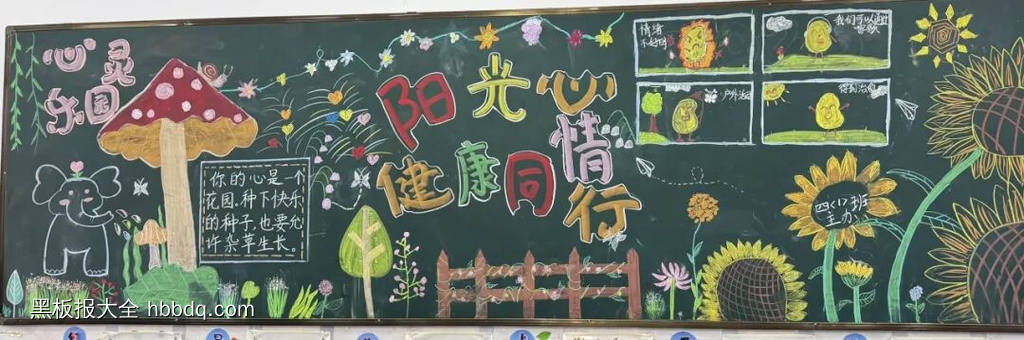 心灵
乐园
阳光心情
健康同行
你的心是一个
花园,种下快乐
的种子,也要允
许杂草生长。
情绪
不好时
我们可以通过
唱歌
户外活动
得到治愈
四〈1〉班
主办
黑板报大全 hbbdq.com